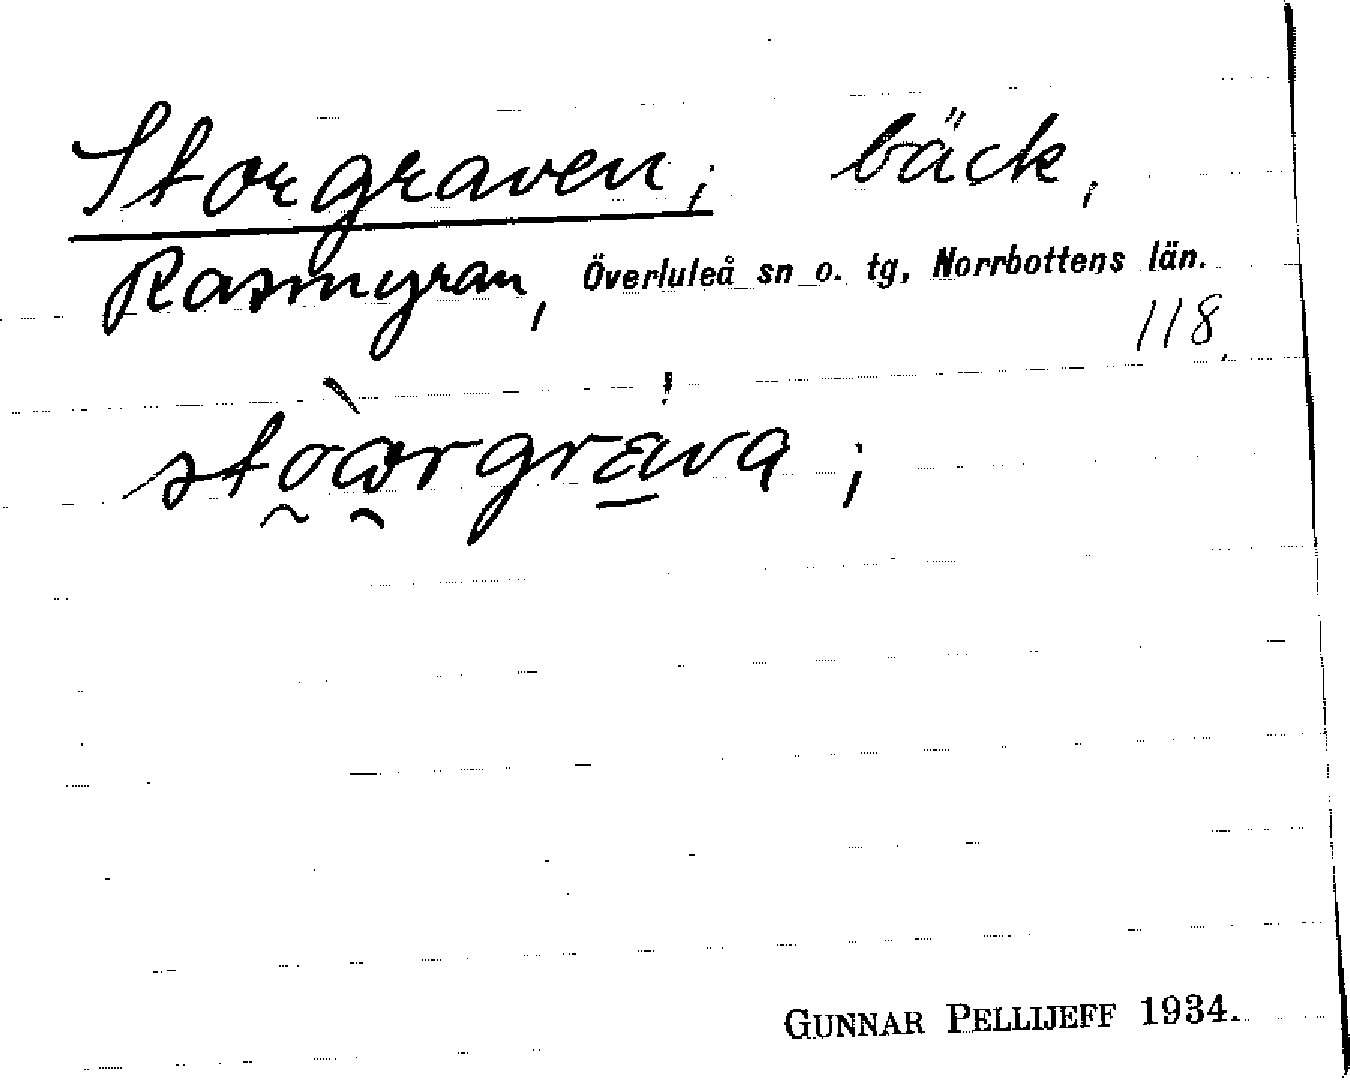 Storgraven, bäck,
Rasmyran, Överluleå sn o. tg, Norrbottens län.
118.
GUNNAR PELLIJEFF 1934.